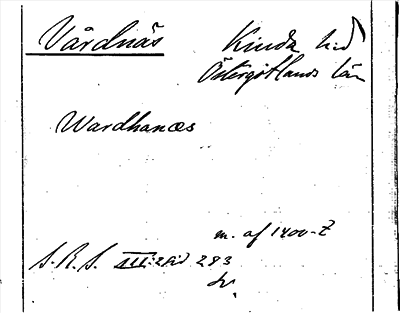 Vårdnäs Kinda hd
Östergötlands län
Wardhanæs
m. af 1400-t
S.R.S. III: 2 sid 283